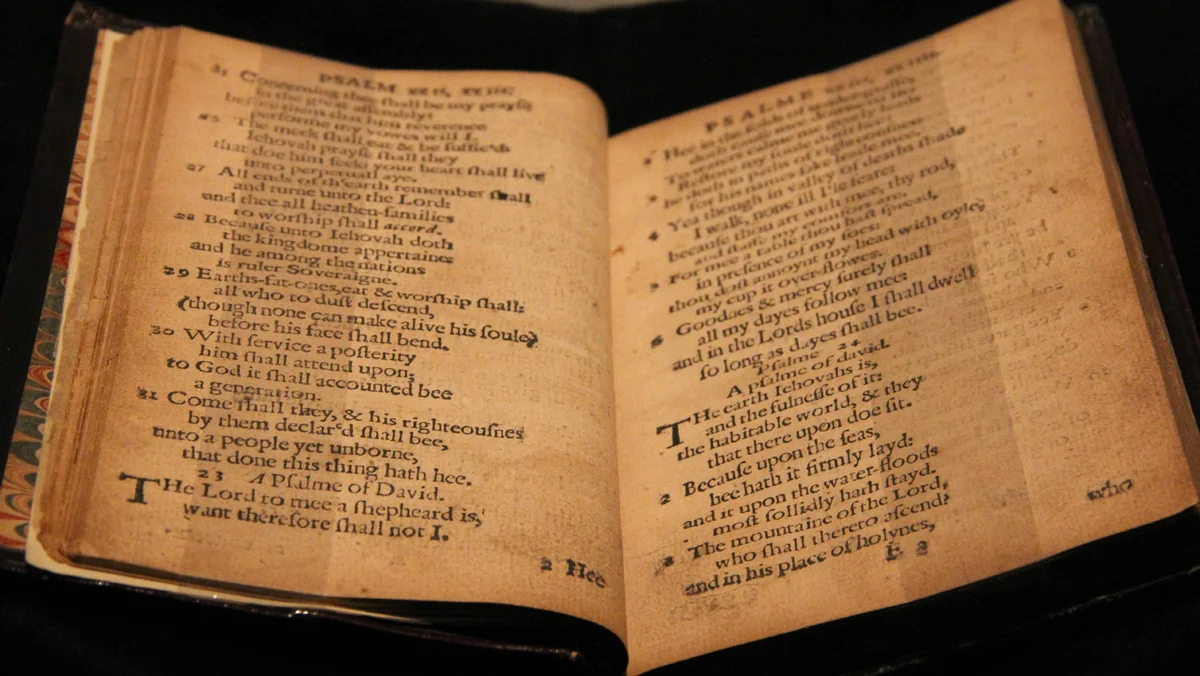 PSALM xxii, xxiii;
25 Concerning thee ſhall be my prayſe
in the great aſſembly:
before them that him reverence
performe my vowes will I.
The meek ſhall eat & be ſufficed
Iehovah prayſe ſhall they
that doe him ſeek: your heart ſhall live
unto perpetuall aye.
27 All ends of th'earth remember ſhall
and turne unto the Lord:
and thee all heathen-families
to worſhip ſhall accord.
28 Becauſe unto Iehovah doth
the kingdome appertaine:
and he among the nations
is ruler Soveraigne.
29 Earths-fat-ones,eat & worſhip ſhall:
all who to duſt deſcend,
(though none can make alive his ſoule)
before his face ſhall bend.
30 With ſervice a poſterity
him ſhall attend upon;
to God it ſhall accounted bee
a generation.
31 Come ſhall they, & his righteouſnes
by them declar'd ſhall bee,
unto a people yet unborne,
that done this thing hath hee.
23 A Pſalme of David.
THe Lord to mee a ſhepheard is,
want therefore ſhall not I.
2 Hee
PSALME
2 Hee in the folds of tender-graſſe,
doth cauſe mee downe to lie:
To waters calme me gently leads
Reſtore my ſoule doth hee:
he doth in paths of righteouſnes
for his names ſake leade mee.
4 Yea though in valley of deaths ſhade
I walk, none ill I'le feare:
becauſe thou art with mee, thy rod,
and ſtaffe my comfort are.
5 For mee a table thou haſt ſpread,
in preſence of my foes:
thou doſt annoynt my head with oyle,
my cup it over-flowes.
6 Goodnes & mercy ſurely ſhall
all my dayes follow mee:
and in the Lords houſe I ſhall dwell
ſo long as dayes ſhall bee.
Pſalme 24
A pſalme of david.
THe earth Iehovahs is,
and the fulneſſe of it:
the habitable world, & they
that there upon doe ſit.
2 Becauſe upon the ſeas,
hee hath it firmly layd:
and it upon the water-floods
moſt ſollidly hath ſtayd.
3 The mountaine of the Lord,
who ſhall thereto aſcend?
and in his place of holynes,
E 2
who